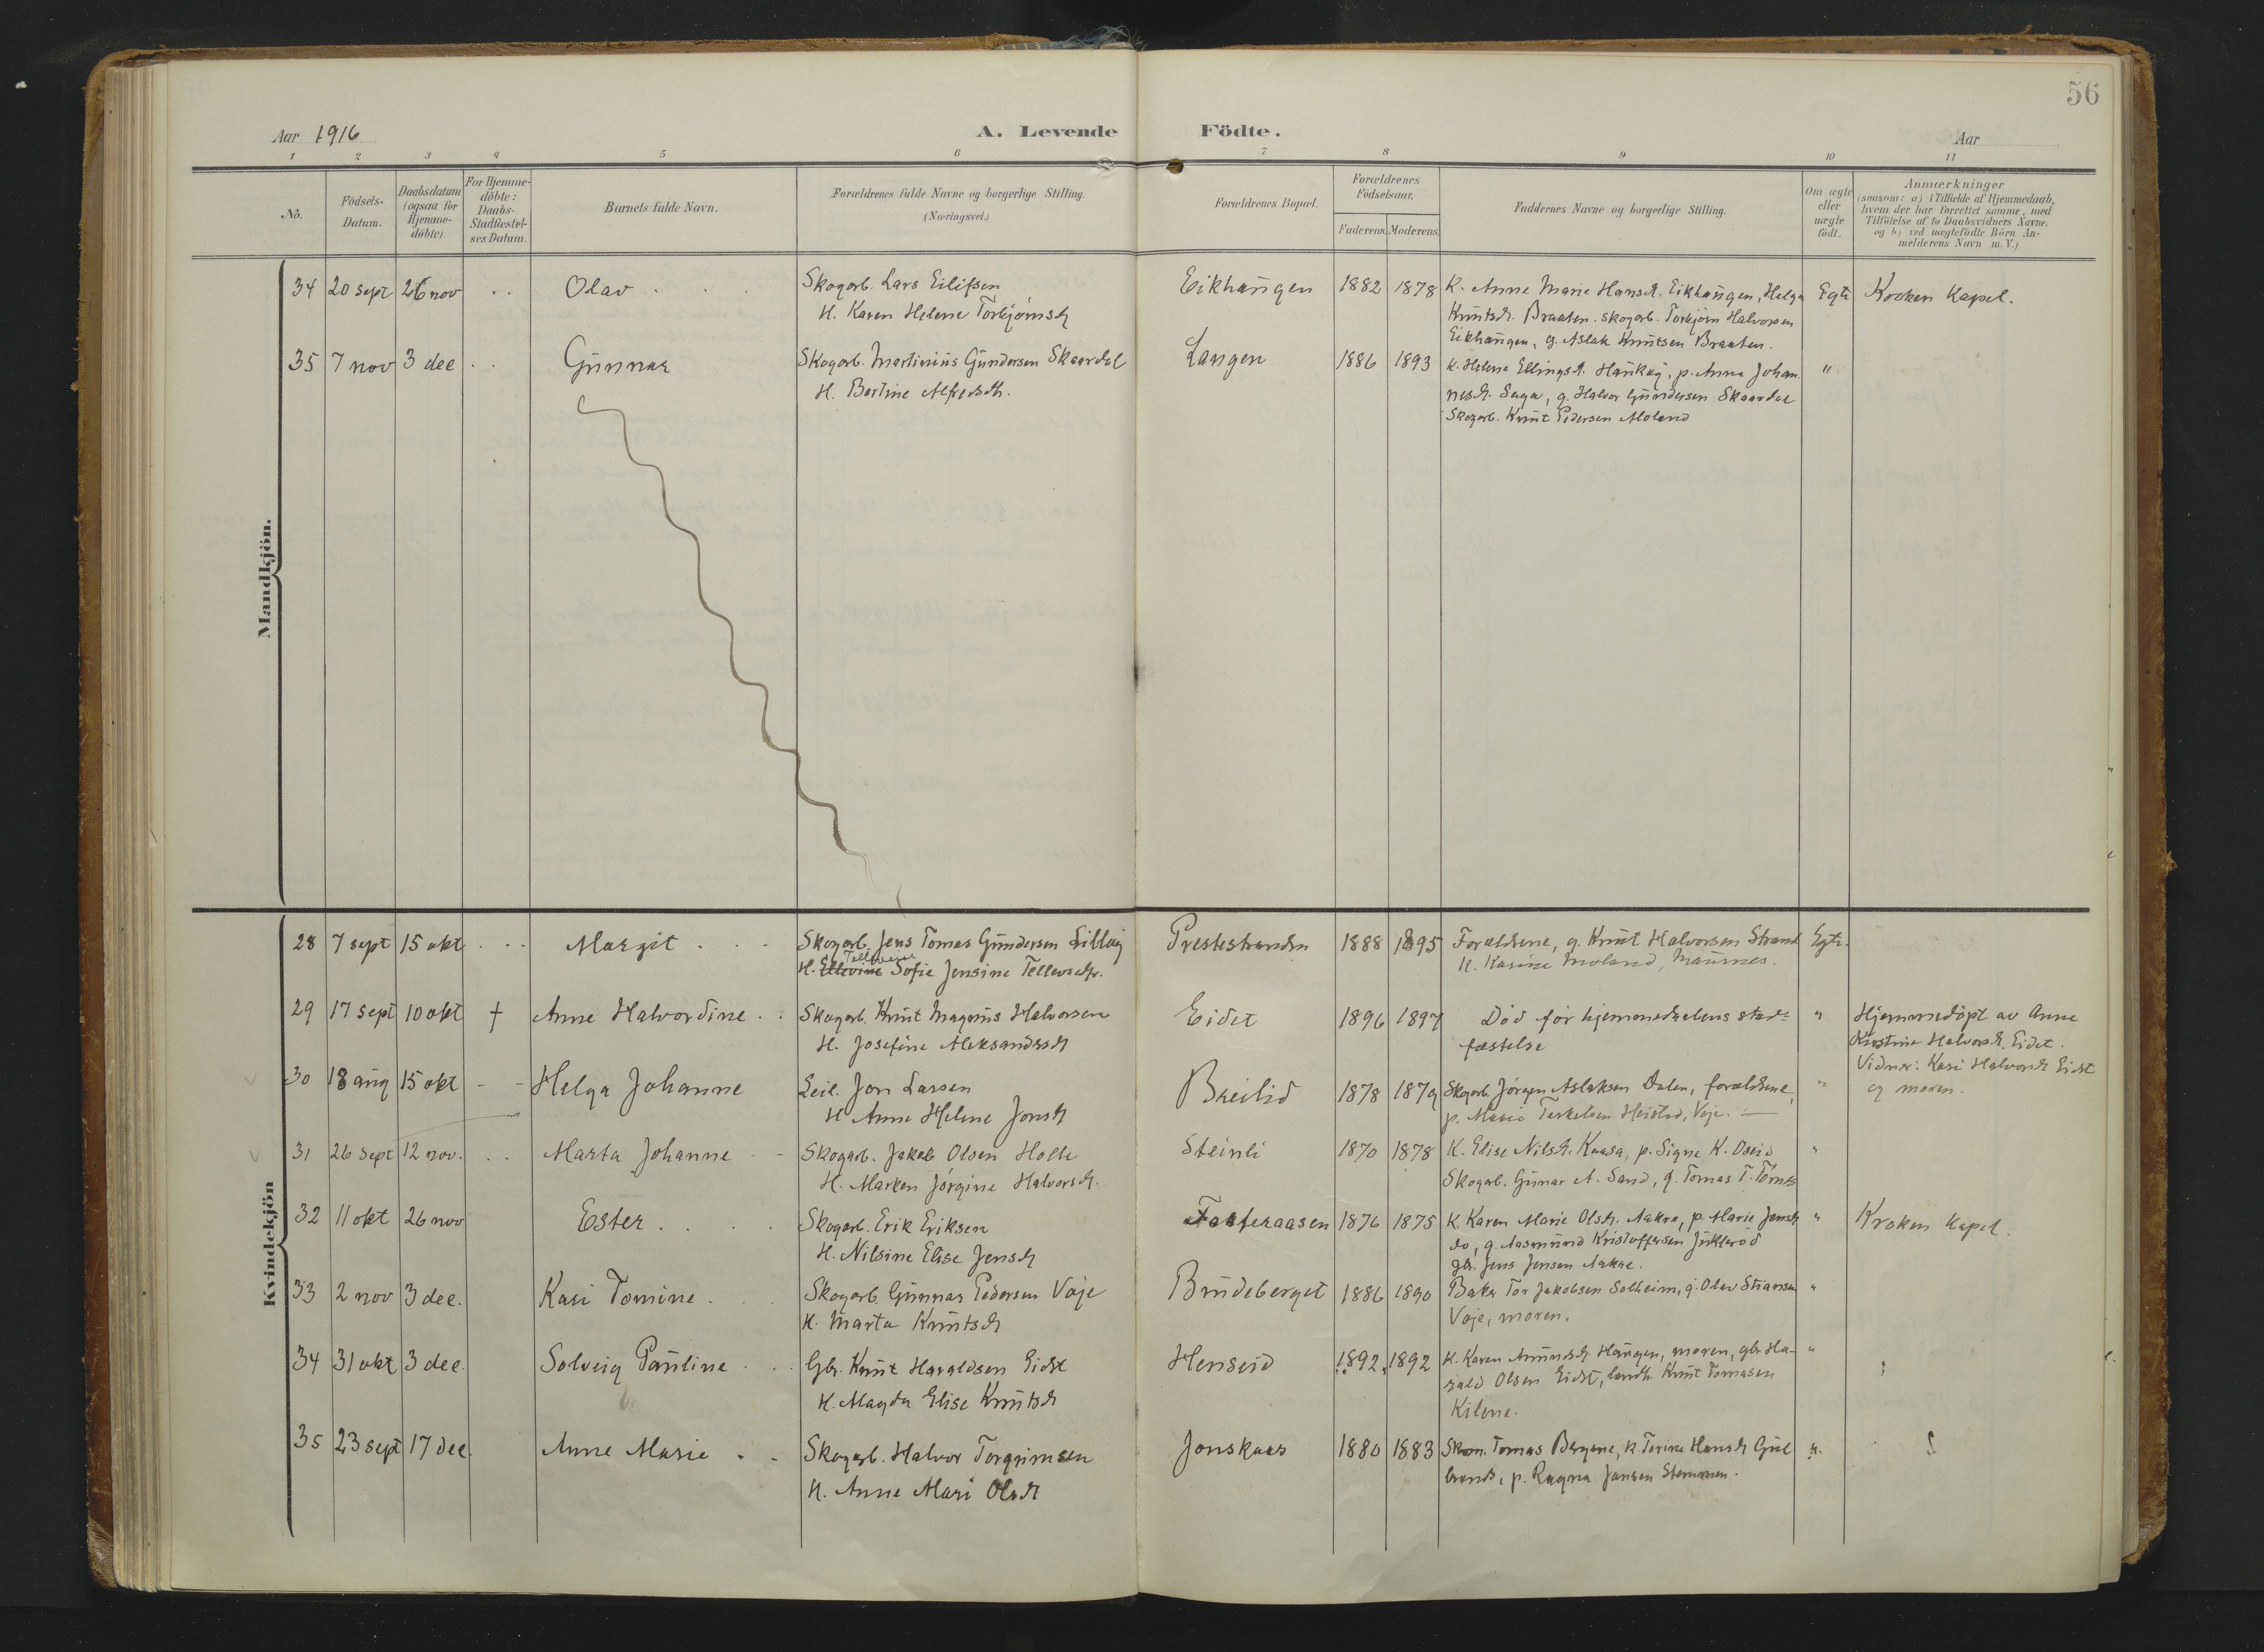 56
Aar 1916
A. Levende Födte.
Aar
1 2 3 4 5 6 7 8 9 10 11
No.
Födsels-Datum.
Daabsdatum (ogsaa for Hjemme-döbte).
For Hjemme-döbte: Daabs-Stadfæstel-ses Datum.
Barnets fulde Navn.
Forældrenes fulde Navne og borgerlige Stilling.
(Næringsvei.)
Forældrenes Bopæl.
Forældrenes Födselsaar.
Faderens. Moderens.
Faddernes Navne og borgerlige Stilling.
Om ægte eller uægte födt.
Anmærkninger
(saasom: a) i Tilfælde af Hjemmedaab,
hvem der har forrettet samme, med
Tilföielse af to Daabsvidners Navne.
og b) ved uægtefödte Börn An-
melderens Navn m.V.)
Mandkjön.
34 20 sept 26 nov . . Olav . . . Skogarb. Lars Eilifsen Eikhaugen 1882 1878 K. Anne Marie Hansd. Eikhaugen, Helga Egte Kroken Kapel.
H. Karen Helene Torbjörnsd Knutsd. Braaten. skogarb. Torbjörn Halvorsen
Eikhaugen, g. Aslak Knutsen Braaten.
35 7 nov 3 dec . . Gunnar Skogarb. Martinius Gundersen Skaardal Langen 1886 1893 K. Helene Ellingsd. Haukøy, p. Anna Johan "
H. Bertine Alfredsdt. nesd. Saga, g. Halvor Gundersen Skaardal
Skogarb. Knut Pedersen Moland
Kvindekjön
28 7 sept 15 okt . . . Margit . . . Skogarb. Jens Tomas Gundersen Lilløy Prestestranden 1888 1895 Forældrene, g. Knut Halvorsen Strand Egte.
H. Ellevine Sofie Jensine Tellevsdtr. K. Kasine Moland,
29 17 sept 10 okt † Anne Halvordine . . Skogarb. Knut Magnus Halvorsen Eidet 1896 1897 Död før hjemmedaabens stad= " Hjemmedöpt av Anne
H. Josefine Aleksandersd fæstelse Kristine Halvorsd. Eidet.
Vidner: Kari Halvorsd Eidet
30 18 aug 15 okt - - Helga Johanne Leil. Jon Larsen Breilid 1878 1879 Skogarb Jörgen Aslaksen Dalen, forældrene, " og moren.
H Anne Helene Jonsd p. Marie Terkelsen Heistad, Voje.
31 26 sept 12 nov. . . Marta Johanne - - Skogarb. Jakob Olsen Holte Steinli 1870 1878 K. Elise Nilsd. Kaasa, p. Signe K. Oseid "
H. Maren Jörgine Halvorsd. Skogarb. Gunar A. Sand, g. Tomas T.
32 11 okt 26 nov Ester . . . . Skogarb. Erik Eriksen Fosteraasen 1876 1875 K. Karen Marie Olsd. Aakre, p. Marie Jensd " Kroken Kapel.
H. Nilsine Elise Jensd do, g. Aasmund Kristoffersen
gb. Jens Jensen Aakre.
33 2 nov 3 dec. Kari Tomine . . Skogarb. Gunnar Pedersen Voje Brudeberget 1886 1890 Baker Tor Jakobsen Solheim, g. Olav Stiansen "
H. Marta Knutsd Voje, moren.
34 31 okt 3 dec. Solveig Pauline . . Gbr. Knut Haraldsen Eidet Henseid 1892 1892 K. Karen Amundsd. Haugen, moren, gbr Ha- "
H. Magda Elise Knutsd rald Olsen Eidet, landh. Knut Tomasen
Kilene.
35 23 sept 17 dec. Anne Marie . . Skogarb. Halvor Torgrimsen Jonskaas 1880 1883 Skom. Tomas Bergene, K. Torine Hansd Gul "
H. Anne Mari Olsd brands, p. Ragna Jansen Stemmen.